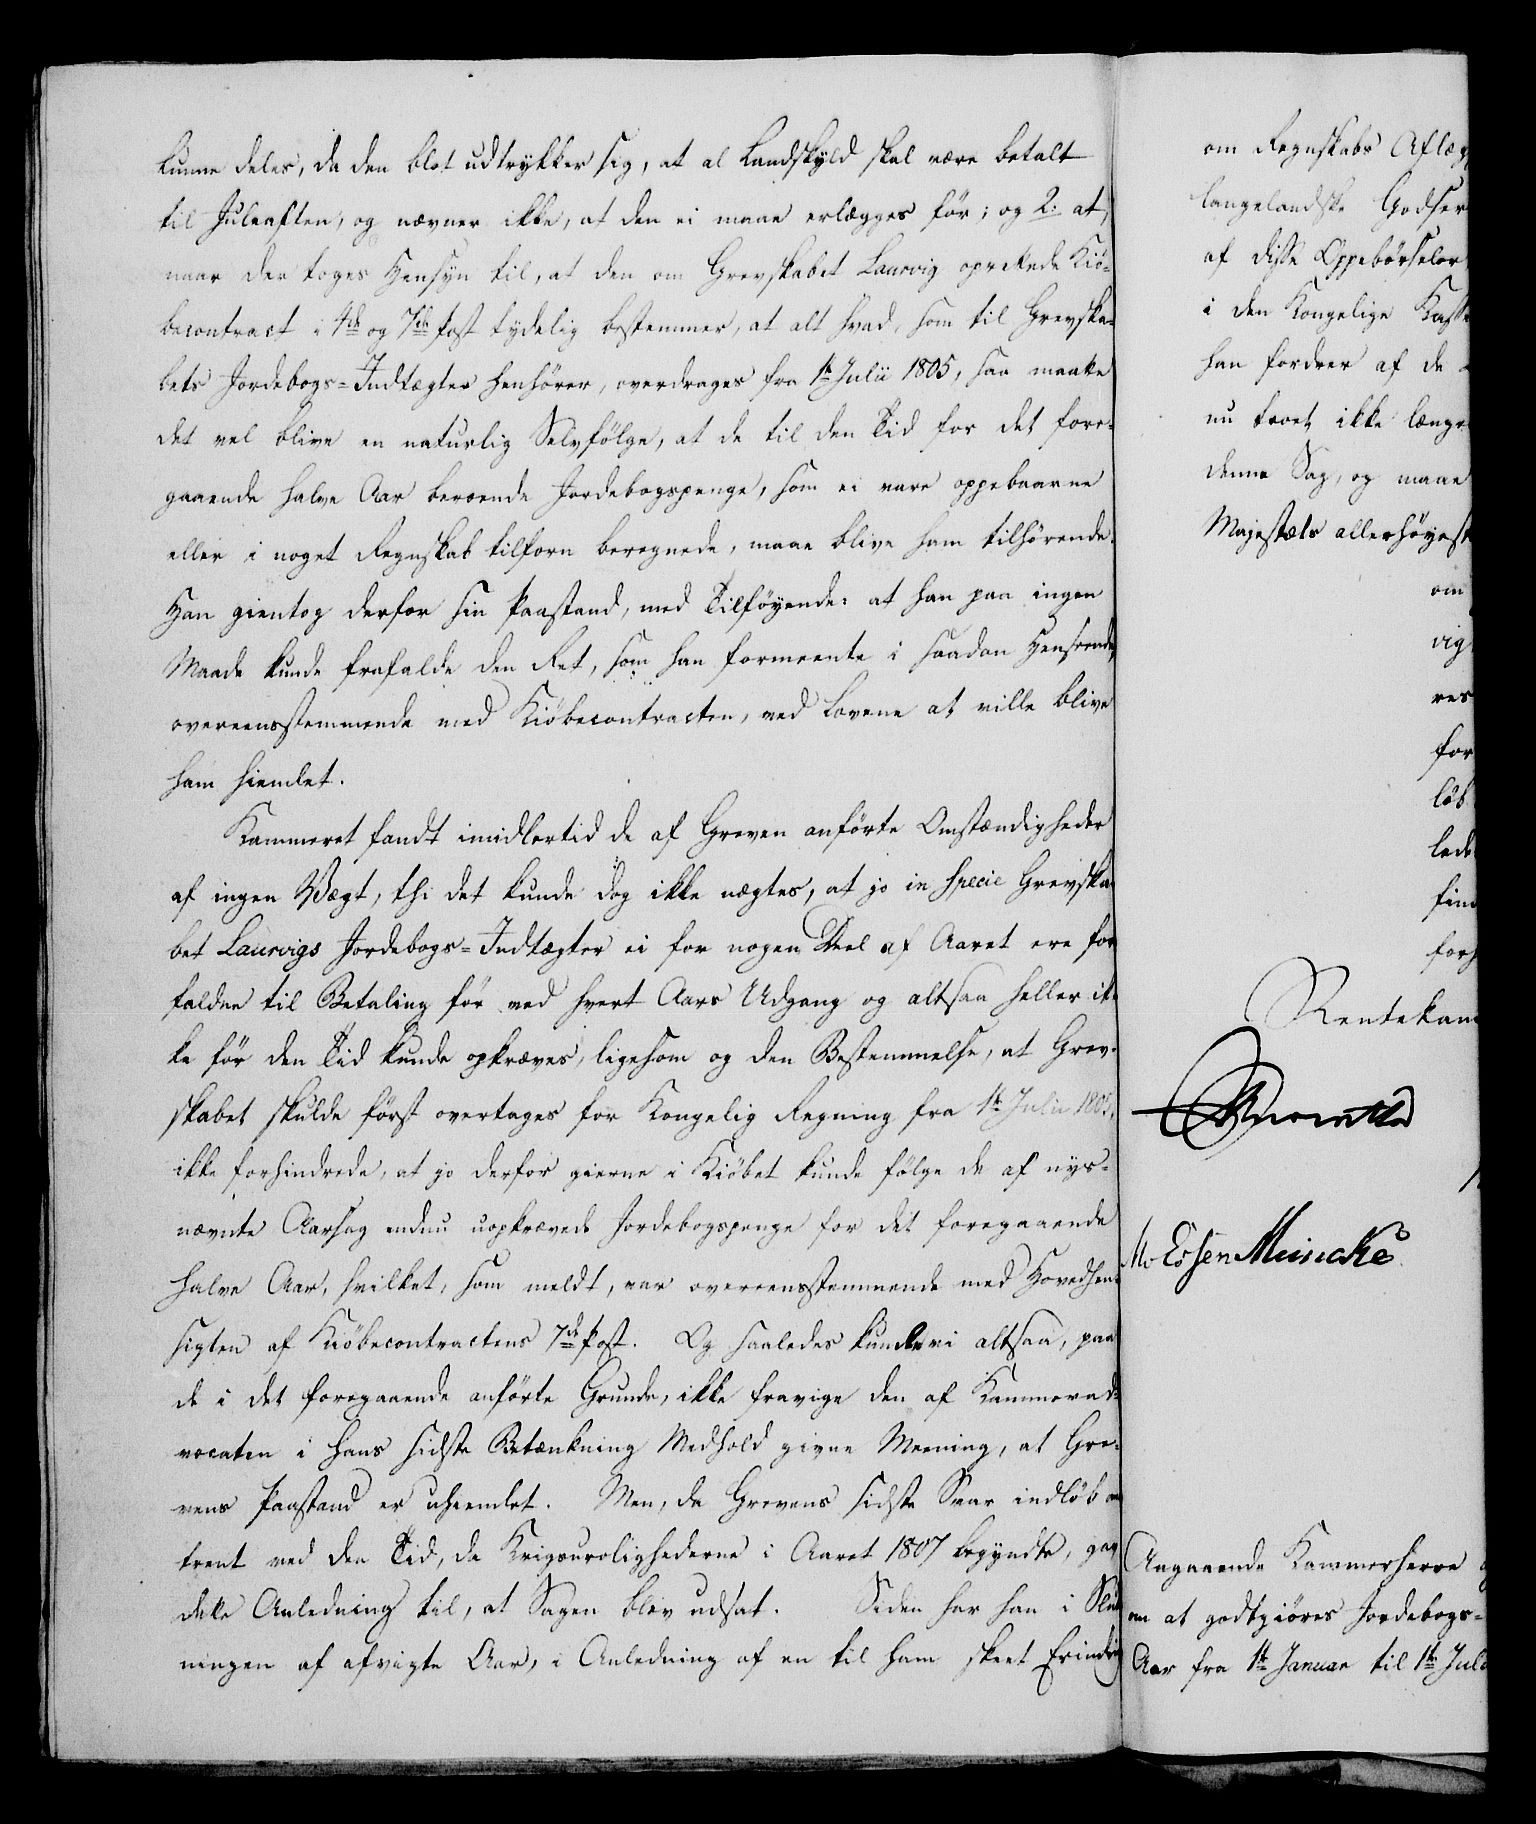 kunne deles, da den blot udtrykker sig, at al Landskyld skal være betalt
til Juleaften, og nævner ikke, at den ei maae erlægges før; og 2: at,
naar der toges Hensyn til, at den om Grevskabet Laurvig oprettede Kiö-
becontract i 4de og 7de Post tydelig bestemmer, at alt hvad, som til Grevska-
bets Jordebogs-Indtægter henhörer, overdrages fra 1te Julii 1805, saa maatte
det vel blive en naturlig Selvfölge, at de til den Tid for det fore-
gaaende halve Aar beroende Jordebogspenge, som ei vare oppebaarne
eller i noget Regnskab tilforn beregnede, maae blive ham tilhörende.
Han gientog derfor sin Paastand, med Tilföyende: at han paa ingen
Maade kunde frafalde den Ret, som han formeente i saadan Henseende,
overeensstemmende med Kiöbecontracten, ved Lovene at ville blive
ham hiemlet.
Kammeret fandt imidlertid de af Greven anförte Omstændigheder
af ingen Vægt, thi det kunde dog ikke nægtes, at jo in specie Grevska-
bet Laurvigs Jordebogs-Indtægter ei for nogen Deel af Aaret ere for
faldne til Betaling för ved hvert Aars Udgang og altsaa heller ik-
ke för den Tid kunde opkræves, ligesom og den Bestemmelse, at Grev-
skabet skulde först overtages for Kongelig Regning fra 1te Julii 1805,
ikke forhindrede, at jo derfor gierne i Kiöbet kunde fölge de af nys-
nævnte Aarsag endnu uopkrævede Jordebogspenge for det foregaaende
halve Aar, hvilket, som meldt, var overeensstemmende med Hovedhen-
sigten af Kiöbecontractens 7de Post. Og saaledes kunde vi altsaa, paa
de i det foregaaende anförte Grunde, ikke fravige den af Kammerad-
vocaten i hans sidste Betænkning Medhold givne Meening, at Gre-
vens Paastand er uhiemlet. Men, da Grevens sidste Svar indlöb om
trent ved den Tid, da Krigsurolighederne i Aaret 1807 begyndte, gav
dette Anledning til, at Sagen blev udsat. Siden har han i Slut
ningen af afvigte Aar, i Anledning af en til ham skeet Erindring
om Regnskabs Aflæg
langelandske Godser
af disse Oppebörseler
i den Kongelige Kasse
han fordrer af de
nu troet ikke længe
denne Sag, og maae
Majestæts allerhöyeste
om
vig
res
for
löb
lede
find
forh
Rentekam
Essen Meincke
Angaaende Kammerherre
om at godtgiöres Jordebogs-
Aar fra 1te Januar til 1te Juli